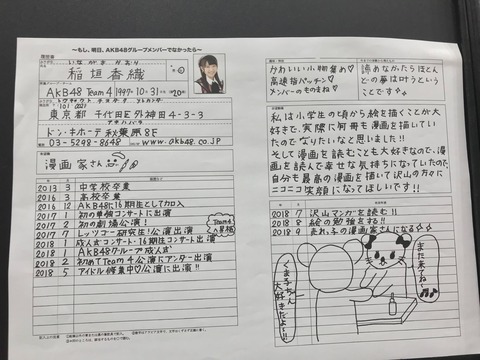 〜もし、明日、AKB48グループメンバーでなかったら〜
履歴書
いながき かおり
稲垣香織
AKB48 Team4
1997・10・31
満20才
101 0021
東京都 千代田区外神田4-3-3
アキハバラ
ドン・キホーテ秋葉原8F
03-5298-8648
www.akb48.co.jp
漫画家さん
2013 3 中学校卒業
2016 3 高校卒業
2016 12 AKB48に16期生として加入
2017 1 初の単独コンサートに出演
2017 2 初の劇場公演!
2017 7 レッツゴー研究生!公演出演
2018 1 成人式コンサート・16期生コンサート出演
2018 1 AKB48グループ成人式
2018 2 初めてTeam4公演にアンダー出演
2018 5 アイドル修業中♡公演に出演!!
Team4へ昇格
かわいい小物集め♡
高速指パッチン♡
メンバーのものまね♡
諦めなかったらほとんどの夢は叶うということです。
私は小学生の頃から絵を描くことが大
好きで、実際に何冊も漫画を描いてい
たのでなりたいなと思いました!!
そして漫画を読むことも好きなので、漫画
を読んで幸せな気持ちになっていたので、
自分も最高の漫画を描いて沢山の方々に
ニコニコ笑顔になってほしいです!!
2018 7 沢山マンガを読む!!
2018 8 絵の勉強をする!!
2018 9 売れっ子の漫画家さんになる
くま子ちゃん
大好きだよ〜!!
また来てね〜